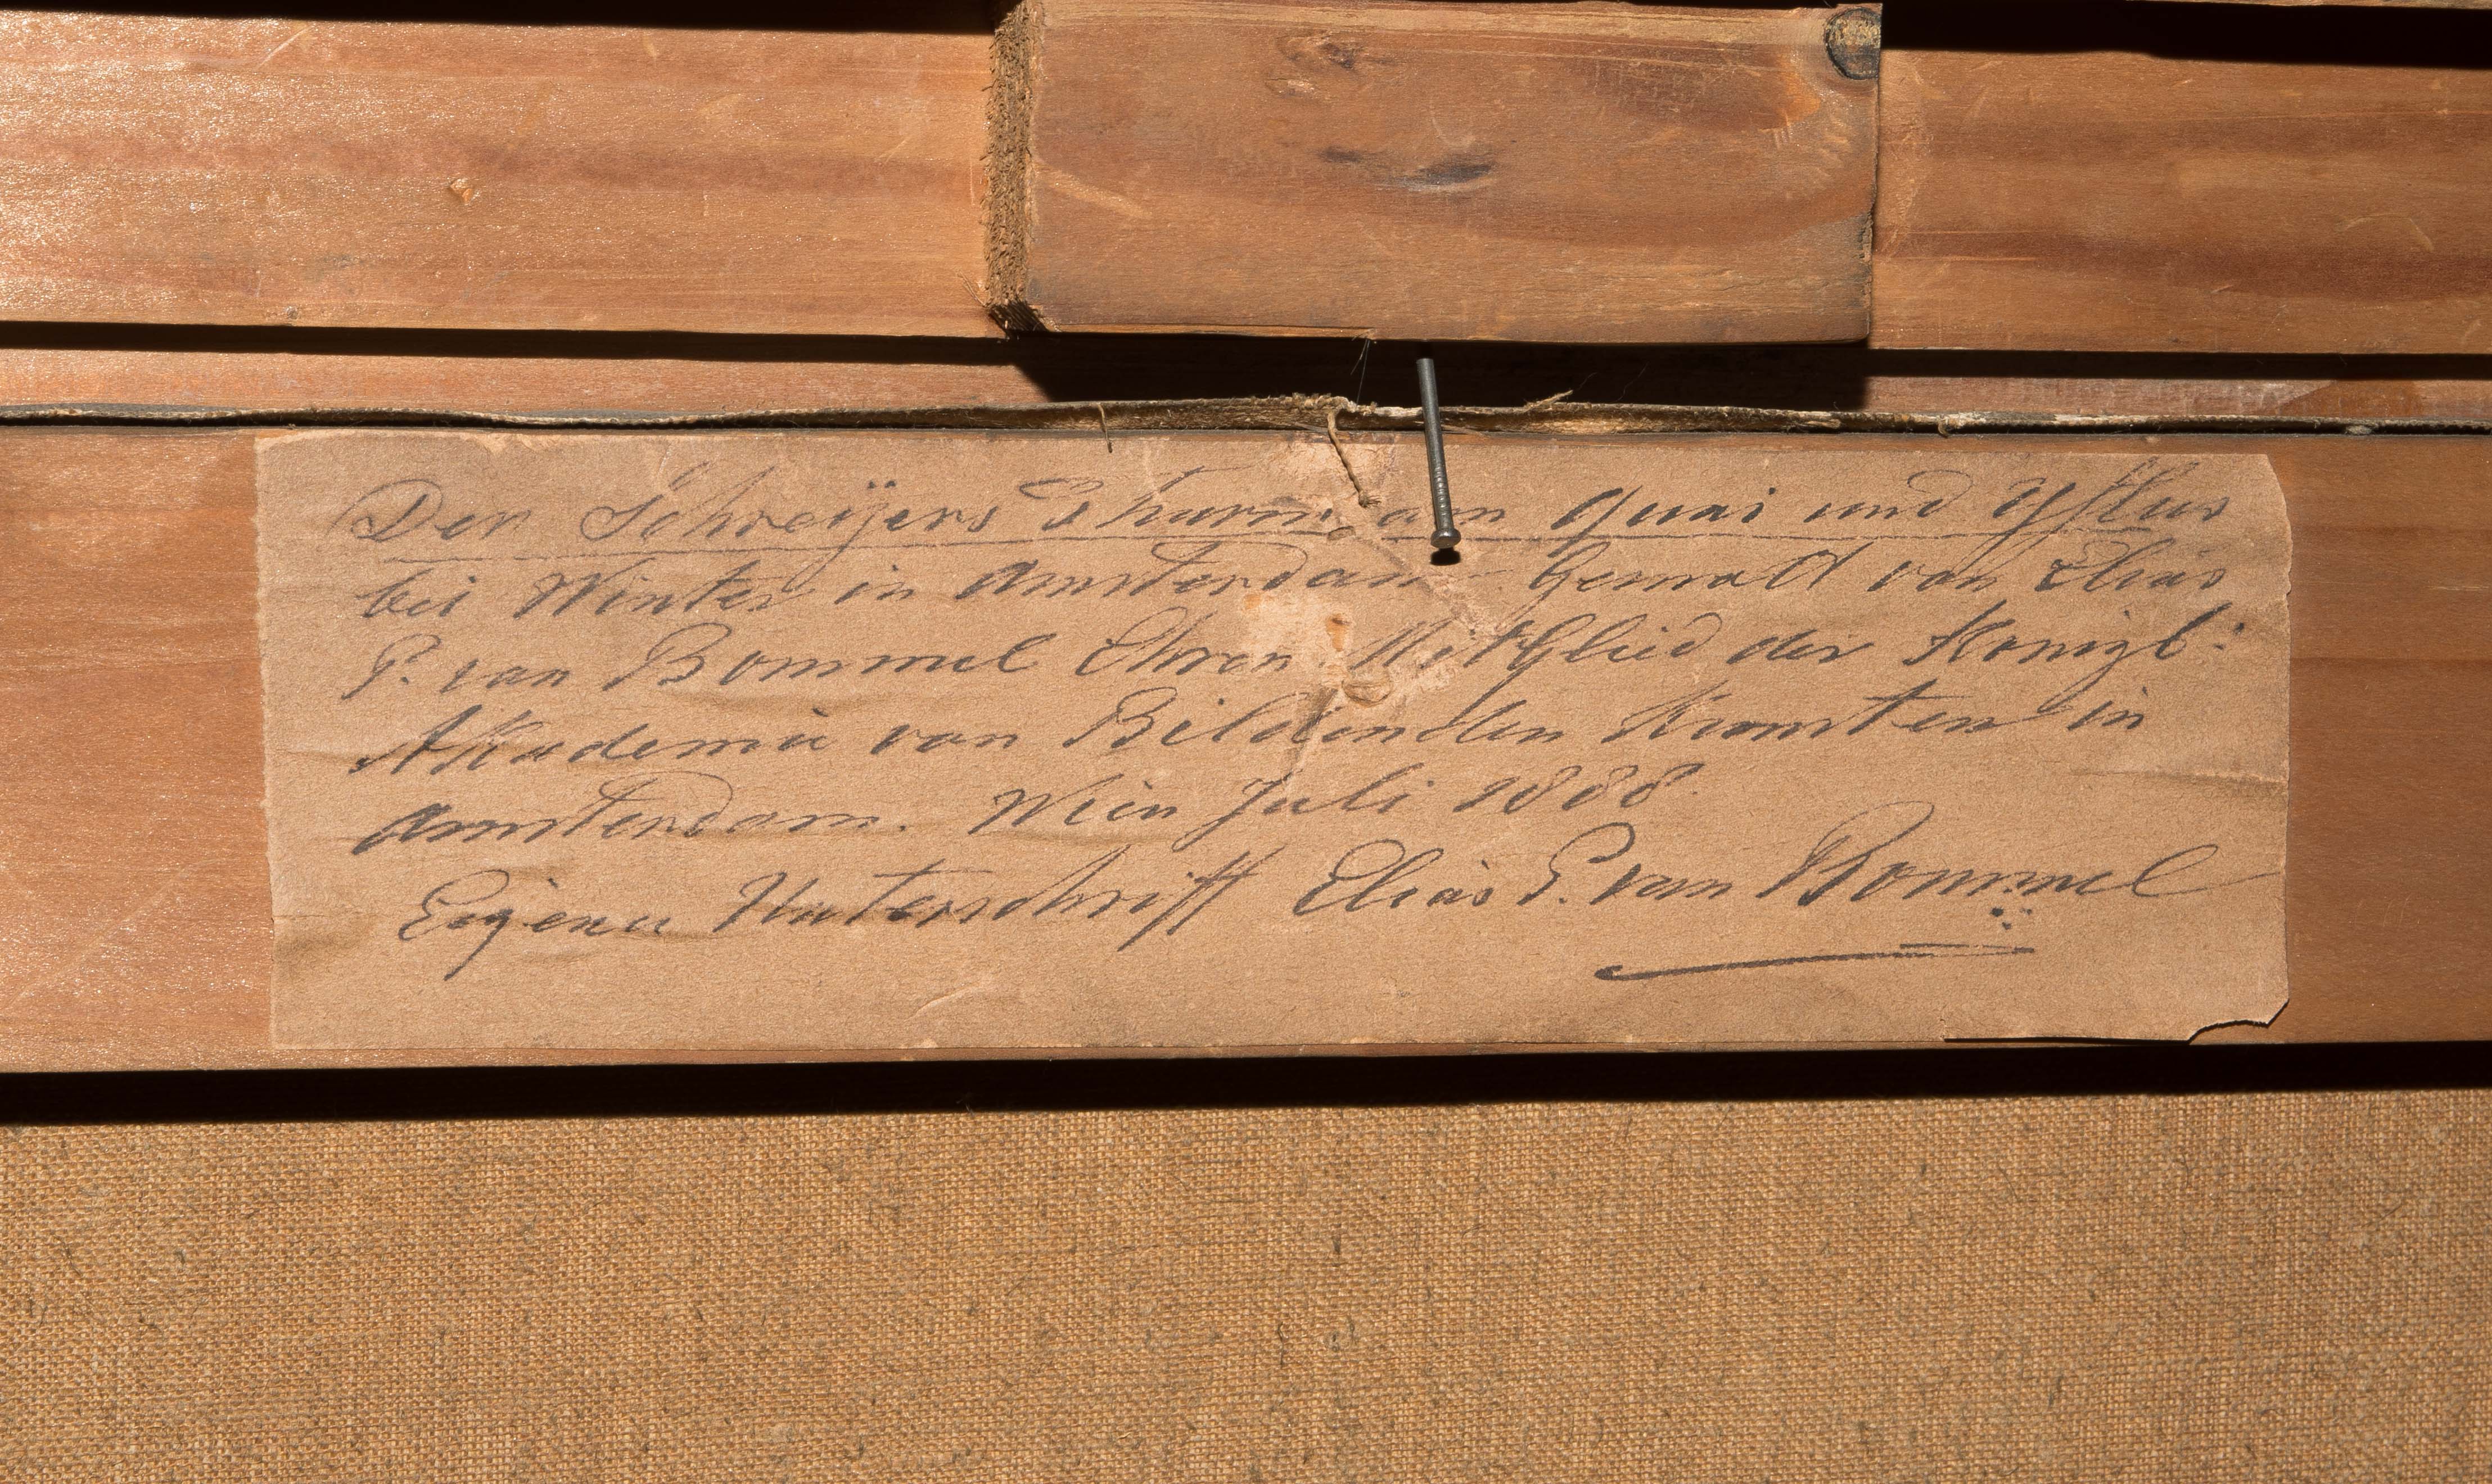 Der Schreÿers Thurm am Quai und Yfluss
bei Winter in Amsterdam Gemalt van Elias
P. van Bommel Ehren Mitglied der Konigl:
Akademie van Bildenden Kunsten in
Amsterdam. Wien Juli 1888.
Eigene Unterschrift Elias P. van Bommel